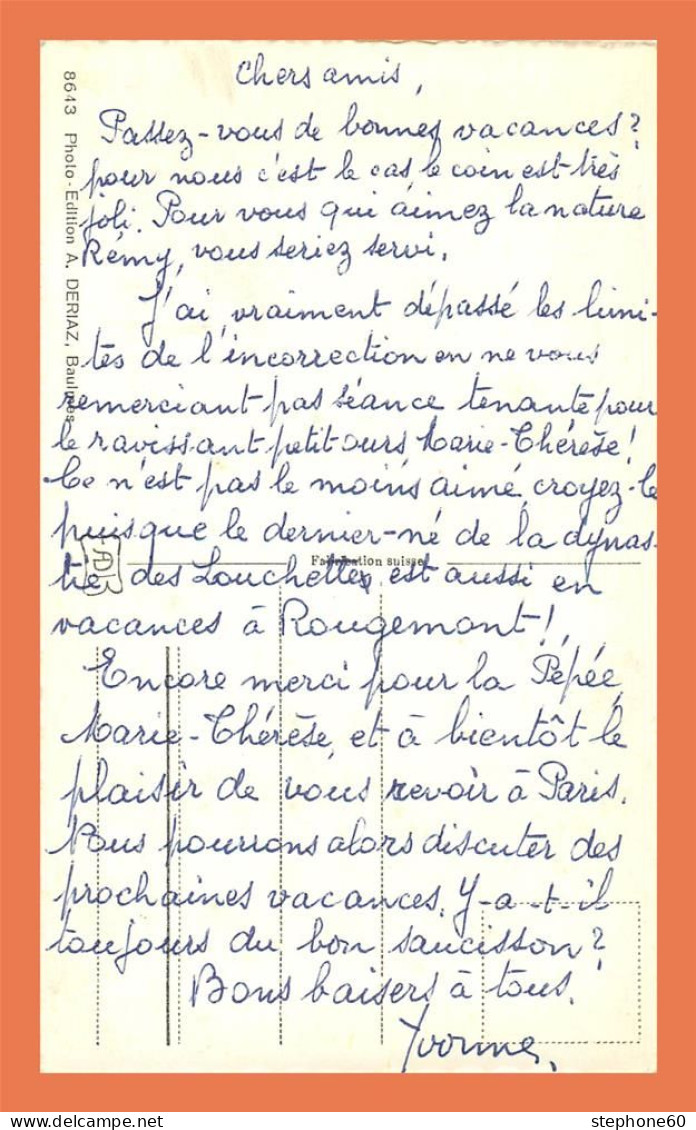 Chers amis,
Passez-vous de bonnes vacances?
pour nous c'est le cas le coin est très
joli. Pour vous qui aimez la nature
Rémy, vous seriez servi.
J'ai vraiment dépassé les limi-
tes de l'incorrection en ne vous
remerciant pas séance tenante pour
le ravissant petit ours Marie-Thérèse!
Ce n'est pas le moins aimé, croyez-le
puisque le dernier-né de la dynas-
tie des Louchettes est aussi en
vacances à Rougemont!
Encore merci pour la Pépée,
Marie-Thérèse, et à bientôt le
plaisir de vous revoir à Paris.
Nous pourrons alors discuter des
prochaines vacances. Y-a-t-il
toujours du bon saucisson?
Bons baisers à tous.
Yvonne.
8643 Photo-Edition A. DERIAZ, Baulmes
Fabrication suisse
AD
stephone60